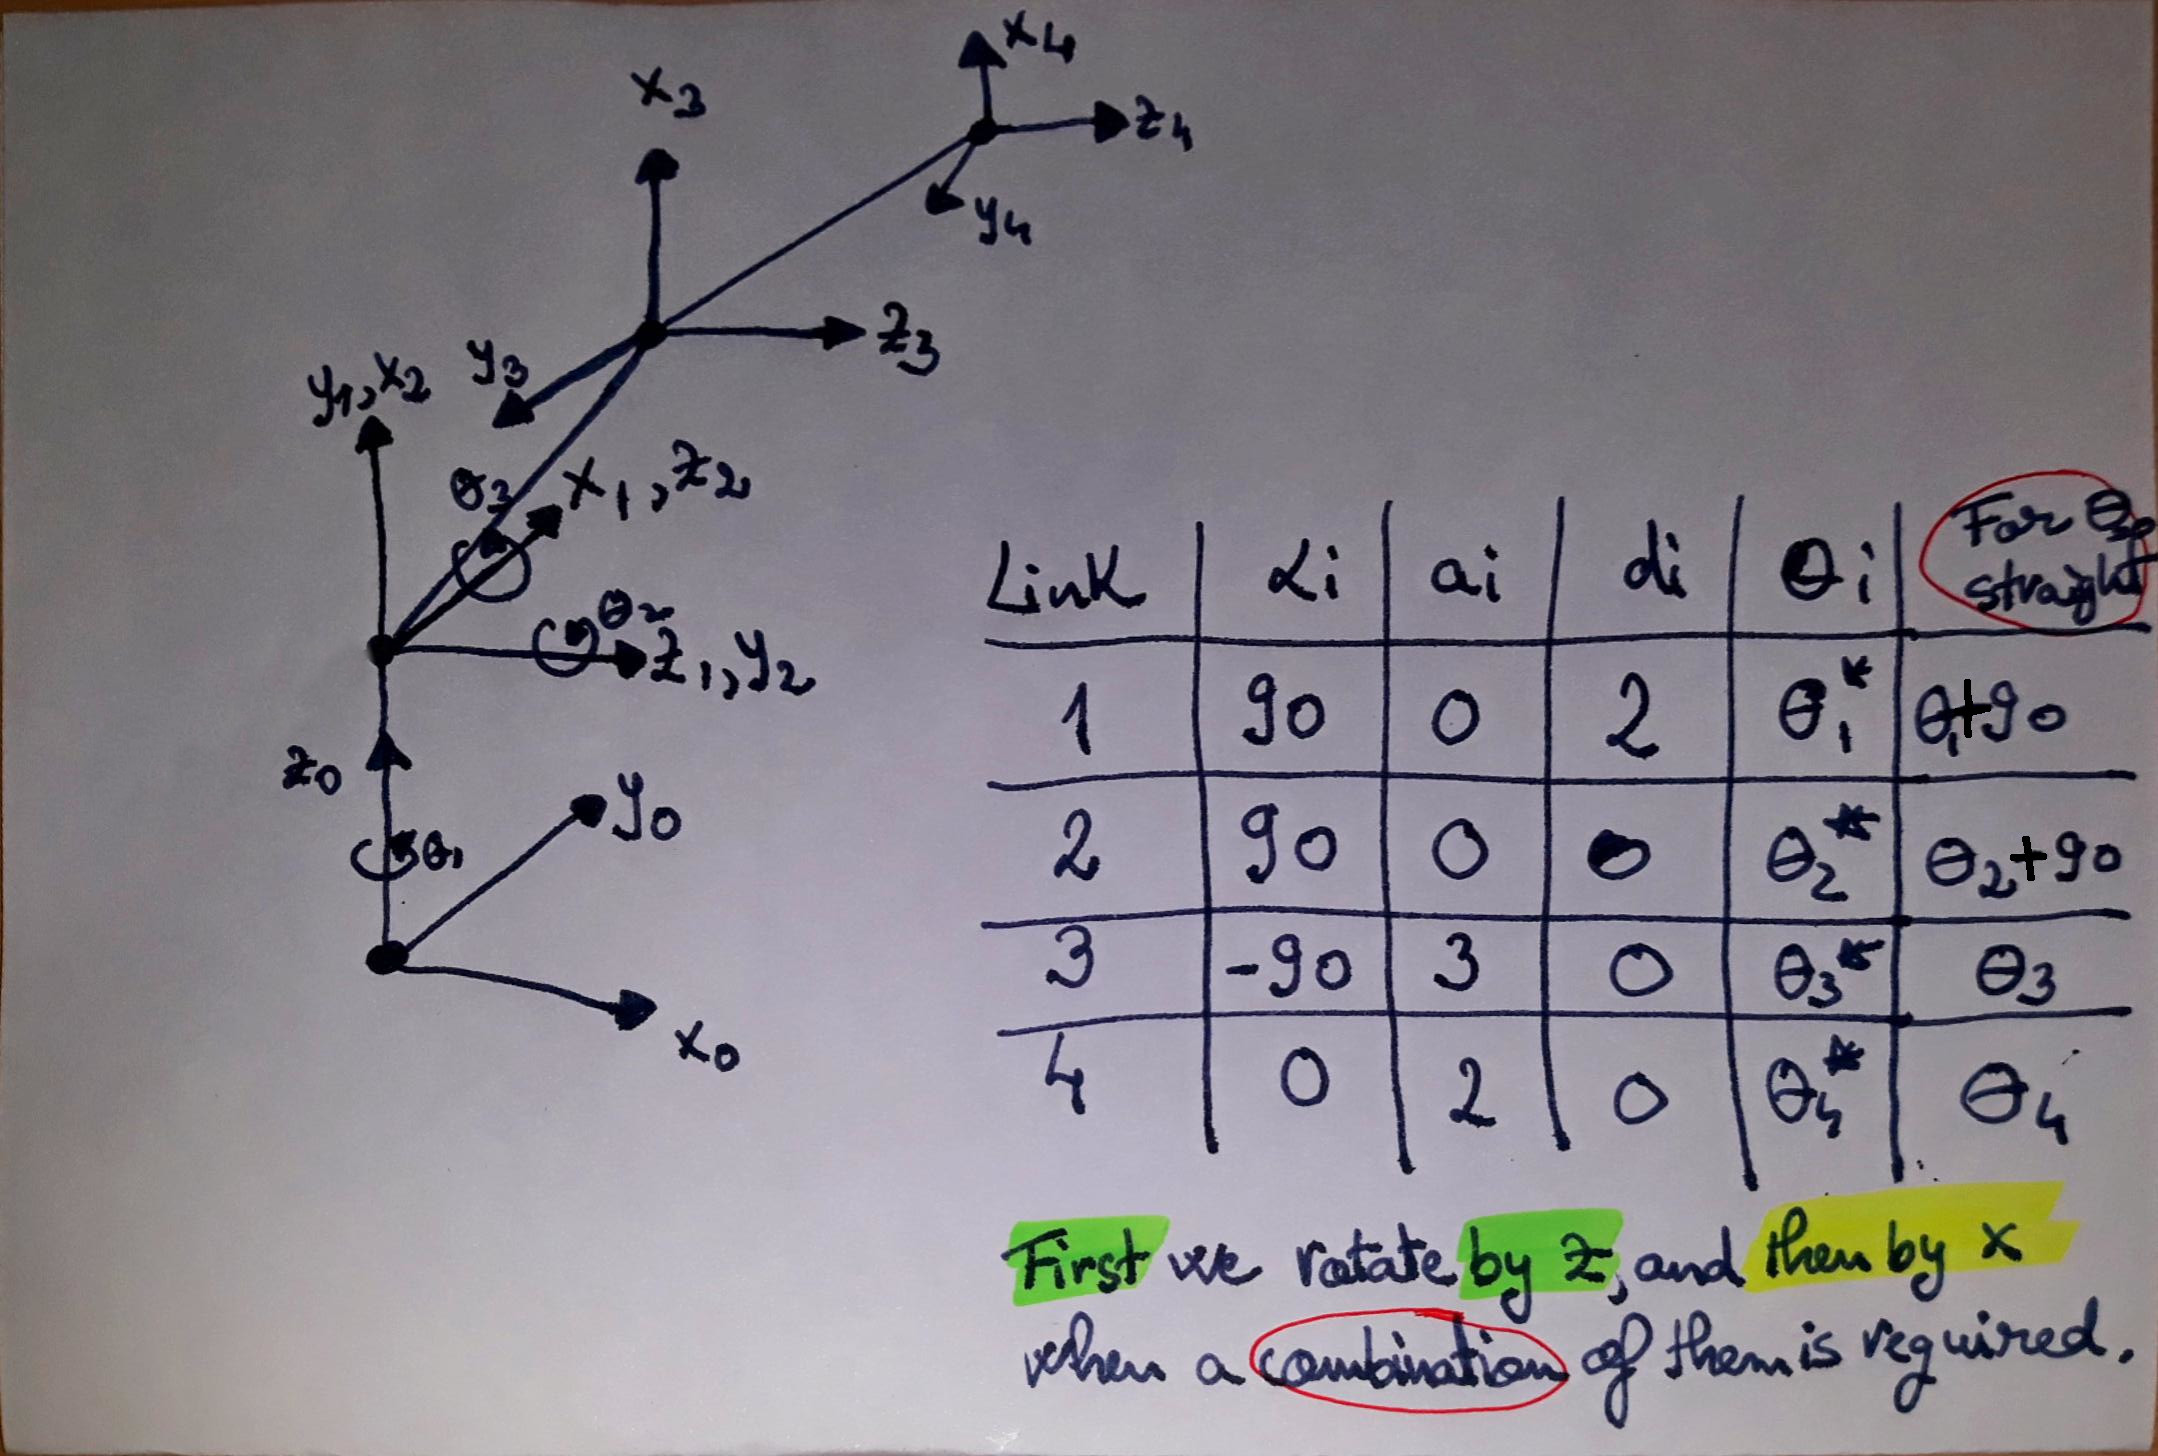 x4
x3
z4
y4
z3
y3
y1, x2
θ3
x1, z2
θ2
z1, y2
z0
y0
θ1
x0
Link | αi | ai | di | θi | For θ straight
1 | 90 | 0 | 2 | θ1* | θ1+90
2 | 90 | 0 | 0 | θ2* | θ2+90
3 | -90 | 3 | 0 | θ3* | θ3
4 | 0 | 2 | 0 | θ4* | θ4
First we rotate by z, and then by x
when a combination of them is required.